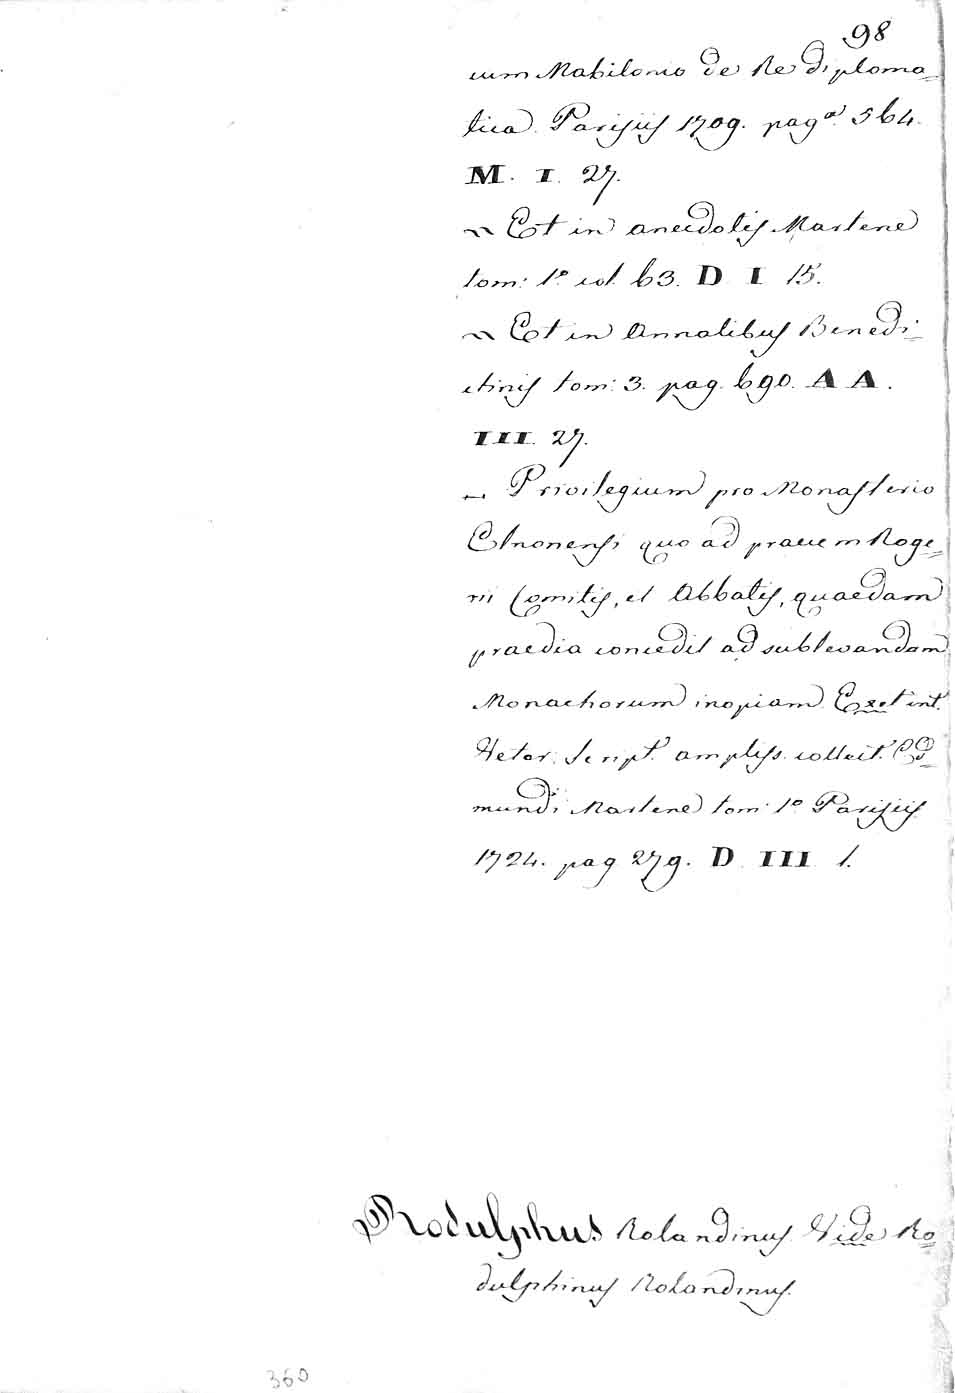 98
cum Mabilonio de Re diploma=
tica. Parisiis 1709. pag.ᵃ 564.
M. I. 27.
~ Et in anecdotis Martene
tom: 1.º col. 63. D I 15.
~ Et in Annalibus Benedi=
ctinis tom: 3. pag. 690. A A.
III. 27.
~ Privilegium pro Monasterio
Elnonensi quo ad preces Roge=
rii Comitis, et Abbatis, quaedam
praedia concedit ad sublevandam
Monachorum inopiam. Extat int.
Veter. Script. ampliss. collect. Ed=
mundi Martene tom: 1.º Parisiis
1724. pag 279. D III 1.
Rodulphus Rolandinus Vide Ro=
dulphinus Rolandinus.
360